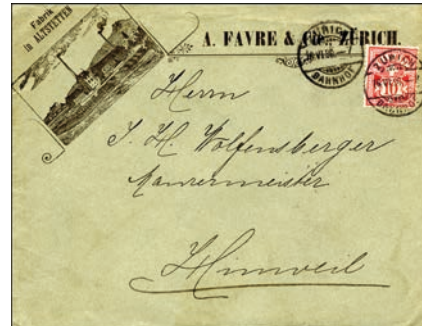 Fabrik
in ALTSTETTEN
A. FAVRE & Co. ZÜRICH.
ZÜRICH
BAHNHOF
ZÜRICH
10
Herrn
J. H. Wolfensberger
Maurermeister
Hinweil